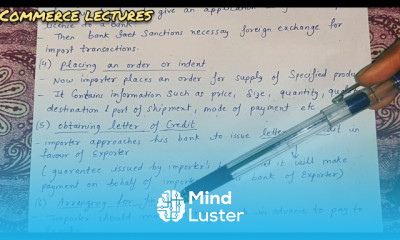 COMMERCE LECTURES
give an application
license to a bank.
Then bank sanctions necessay foreign exchange for
import transactions.
(4) placing an order or indent
- Now importer places an order for supply of specified
- It contains information such as price, size, quantity,
destination / port of shipment, mode of payment etc
(5) obtaining letter of Credit
- importer approaches his bank to issue in
favour of Exporter
( guarantee issued by importer's it will make
payment on behalf of bank of Exporter)
(6) Arranging for
- importer should in advance to pay to
Mind
Luster